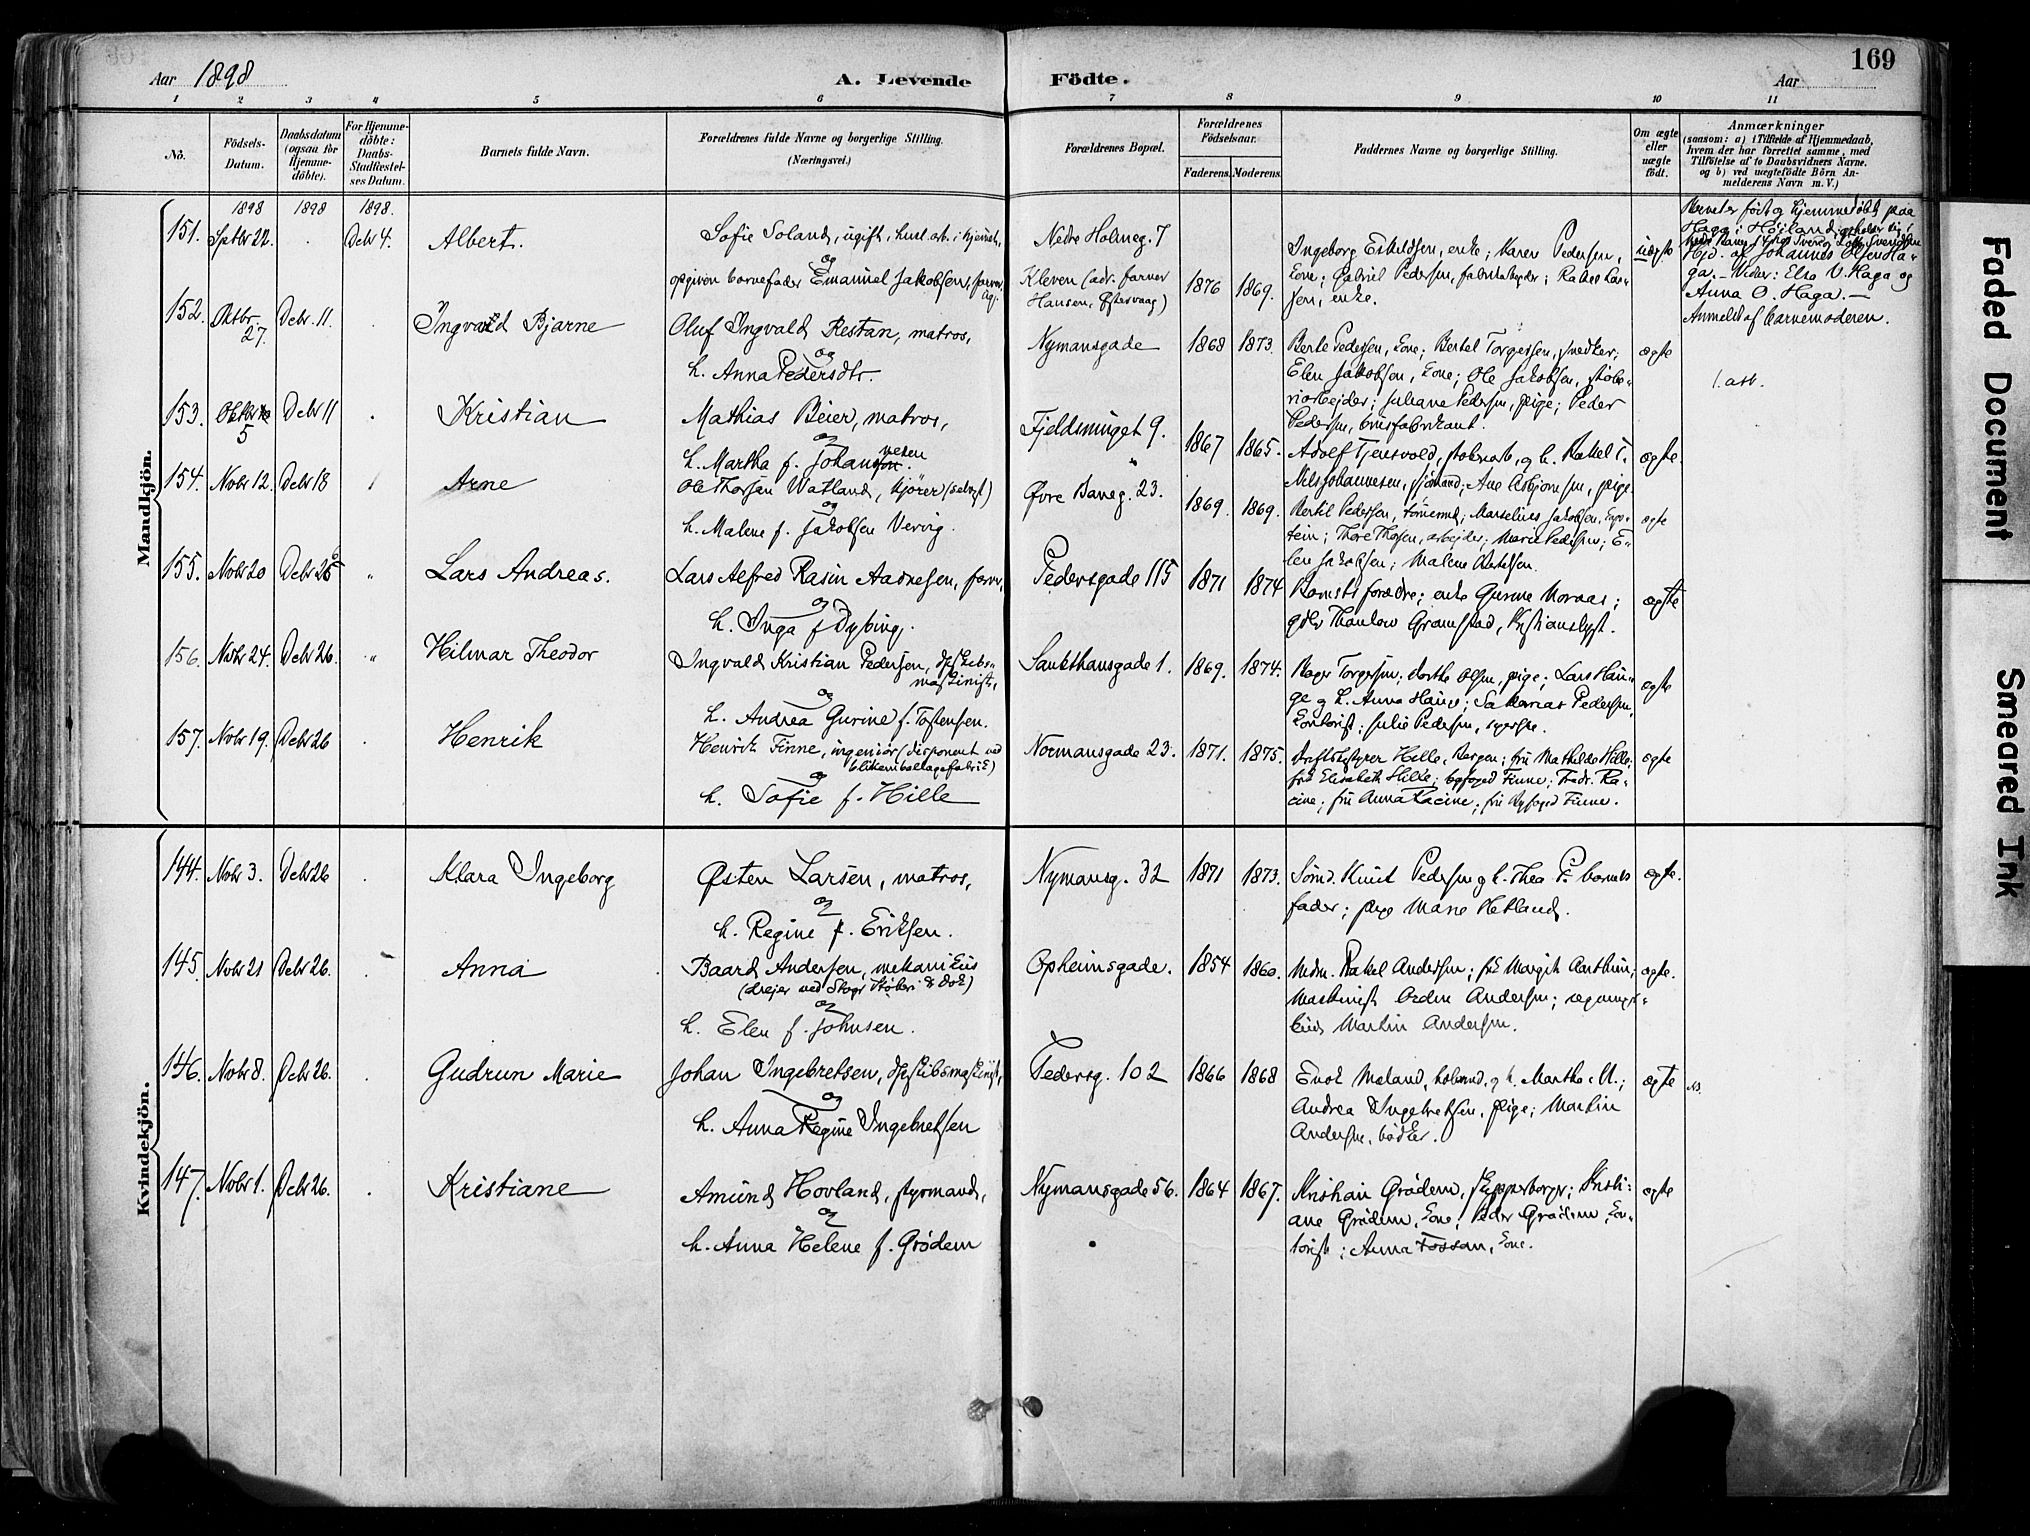 169
Aar 1898
A. Levende Födte.
Aar
1 2 3 4 5 6 7 8 9 10 11
No.
Födsels-Datum.
Daabsdatum (ogsaa for Hjemmedöbte).
For Hjemmedöbte: Daabs-Stadfestelses Datum.
Barnets fulde Navn.
Forældrenes fulde Navne og borgerlige Stilling.
(Næringsvei.)
Forældrenes Bopæl.
Forældrenes Födselsaar.
Faderens. Moderens.
Faddernes Navne og borgerlige Stilling.
Om ægte eller uægte født.
Anmærkninger
(saasom: a) i Tilfælde af Hjemmedaab,
hvem der har forrettet samme, med
Tilföielse af to Daabsvidners Navne.
og b) ved uægtefödte Börn An-
melderens Navn m. V.)
1898 1898 1898.
Mandkjön.
151. Septbr 22. Debr 4. Albert.
Sofie Soland, ugift,
og
opgiven barnefader Emanuel Jakobsen, farver
Nedre Holmeg. 7
Kleven (adr. farver
Hansen, Østervaag)
1876 1869.
Ingeborg Eskildsen, enke; Karen Pedersen,
kone; Gabriel Pedersen, fabrikarbeider; Rakel Lar-
sen, enke.
uægte
Barnet er født og hjemmedøbt paa
Haga i Høiland
Hjd. af Johannes Olsen Ha-
ga. - Vidner: Else V. Haga og
Anna O. Haga. -
Anmeldt af barnemoderen.
152. Oktbr. 27. Debr. 11. Ingvald Bjarne
Oluf Ingvald Restan, matros,
og
h. Anna Pedersdtr.
Nymansgade
1868 1873.
Berte Pedersen, kone; Bertel Torgersen, snedker;
Elen Jakobsen, kone; Ole Jakobsen, støbe-
riarbejder; Juliane Pedersen, pige; Peder
Pedersen, brusfabrikant.
ægte
1. att.
153. 5 Debr 11 Kristian
Mathias Beier, matros,
og
h. Martha f. Johannesen.
Fjeldsminget 9.
1867 1865.
Adolf Tjensvold, og h. Rakel T.
Nils Johannesen, sjømand; Ane Asbjørnsen, pige.
ægte.
154. Nobr 12. Debr 18 Arne
Ole Thorsen Watland, kjører (selvst)
og
h. Malene f. Jakobsen Vervig.
Øvre Baneg. 23.
1869. 1869.
Bertil Pedersen, tømmermd; Marselius Jakobsen,
Thore Thorsen, arbejder; Marie Pedersen; E-
len Jakobsen; Malene
ægte
155. Nobr 20 Debr 26 Lars Andreas.
Lars Alfred Rasin Aadnesen, farver,
og
h. Inga f Dybing.
Pedersgade 115
1871 1874
Barnets forældre; enke Gurine Moraas;
Thaulow Gramstad, Kristianslyst.
ægte
156. Nobr 24. Debr 26. Hilmar Theodor
Ingvald Kristian Pedersen, dpskibs-
maskinist,
og
h. Andrea Gurine f. Tostensen.
Sankthansgade 1.
1869. 1874.
Roger Torgersen; Dorthe Olsen, pige; Lars Hau-
ge og h. Anna Hauge; Sakarias Pedersen,
kontorist; Julie Pedersen,
ægte
157. Nobr 19. Debr 26 Henrik
Henrik Finne, ingeniør (disponent ved
blikemballagefabrik)
og
h. Sofie f. Hille
Normansgade 23.
1871. 1875.
Driftsbestyrer Hille, Bergen; fru Mathilde Hille;
frk Elisabeth Hille; byfoged Finne; Fredr. Ra-
cine; fru Anna Racine; fru Byfoged Finne.
ægte
Kvindekjön.
144. Nobr 3. Debr 26 Klara Ingeborg
Østen Larsen, matros,
og
h. Regine f. Eriksen.
Nymansg. 32
1871 1873.
Sømd. Knut Pedersen og h. Thea P. barnets
fader; pige Marie Hetland.
ægte.
145. Nobr 21 Debr 26. Anna
Baard Andersen, mekanikus
(drejer ved Stavgr Støberi & Dok)
og
h. Elen f. Johnsen.
Opheimsgade.
1854 1860.
Mdm. Rakel Andersen; frk Margit
Maskinist Andersen;
Martin Andersen.
ægte.
146. Nobr 8. Debr 26. Gudrun Marie
Johan Ingebretsen, dpskibsmaskinist,
og
h. Anna Regine Ingebretsen
Pedersg. 102
1866 1868
Enok Maland, og h. Martha M.;
Andrea Ingebretsen, pige; Martin
Andersen, bødker.
ægte
147. Nobr 1. Debr 26. Kristiane
Amund Hovland, styrmand,
og
h. Anna Helene f. Grødem
Nymansgade 56.
1864 1867.
Kristian Grødem, skipperborger; Kristi-
ane Grødem, kone; Peder Grødem, kon-
torist; Anna Fossan, kone.
ægte
Faded Document
Smeared Ink